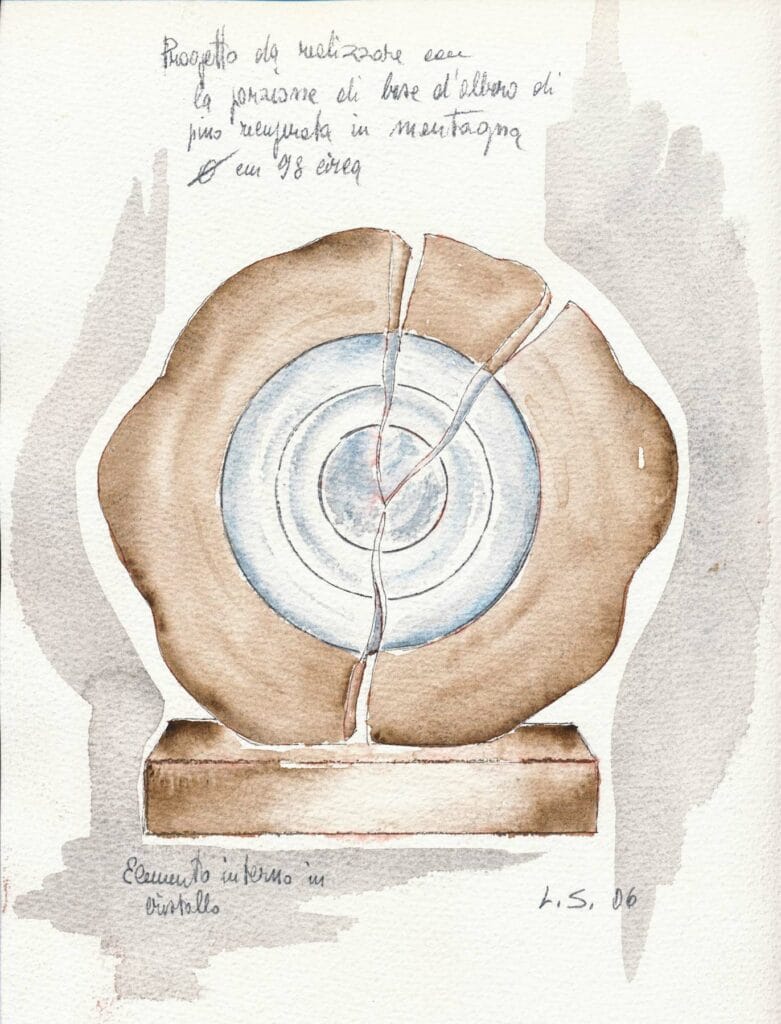 Progetto da realizzare con
la porzione di base d'albero di
pino recuperata in montagna
Ø cm 98 circa
Elemento interno in
cristallo
L. S. 06